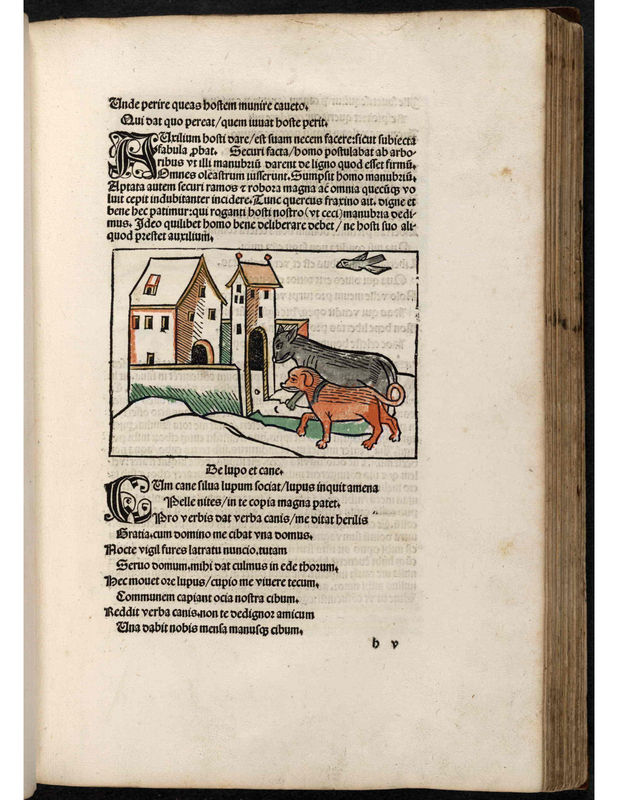 Unde perire queas hostem munire caveto.
Qui dat quo pereat/quem iuuat hoste perit.
AUxilium hosti dare/est suam necem facere: sicut subiecta
fabula ꝓbat. Securi facta/homo postulabat ab arbo-
ribus vt illi manubriū darent de ligno quod esset firmū.
Omnes oleastrum iusserunt. Sumpsit homo manubriū.
Aptata autem securi ramos ⁊ robora magna ac omnia quecūqꝫ vo
luit cepit indubitanter incidere. Tunc quercus fraxino ait. digne et
bene hec patimur: qui roganti hosti nostro (vt ceci) manubria dedi-
mus. Ideo quilibet homo bene deliberare debet/ne hosti suo ali-
quod prestet auxilium.
De lupo et cane.
CUm cane silua lupum sociat/lupus inquit amena
Pelle nites/in te copia magna patet.
Pro verbis dat verba canis/me ditat herilis
Gratia. cum domino me cibat vna domus.
Nocte vigil fures latratu nuncio. tutam
Seruo domum. mihi dat culmus in ede thorum.
Hec mouet ore lupus/cupio me viuere tecum.
Communem capiant ocia nostra cibum.
Reddit verba canis. non te dedignor amicum
Una dabit nobis mensa manusqꝫ cibum.
b v